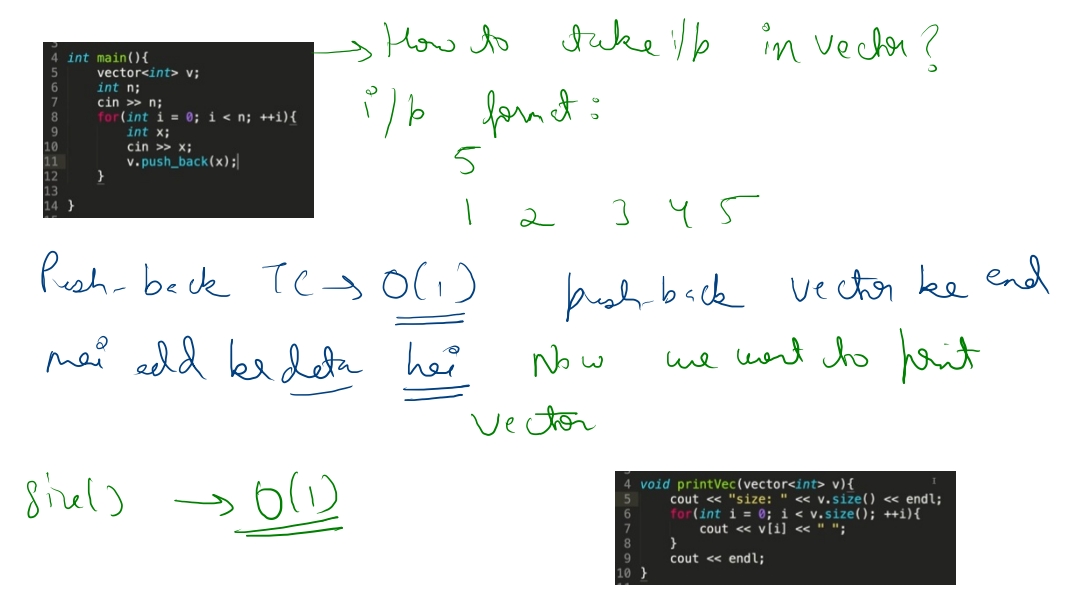 How to take i/p in vector?
4 int main(){
5 vector<int> v;
6 int n;
7 cin >> n;
8 for(int i = 0; i < n; ++i){
9 int x;
10 cin >> x;
11 v.push_back(x);
12 }
13
14 }
i/p format:
5
1 2 3 4 5
Push-back TC → O(1) push-back vector ke end
mei add kr deta hei Now we want to print
vector
size() → O(1)
4 void printVec(vector<int> v){
5 cout << "size: " << v.size() << endl;
6 for(int i = 0; i < v.size(); ++i){
7 cout << v[i] << " ";
8 }
9 cout << endl;
10 }